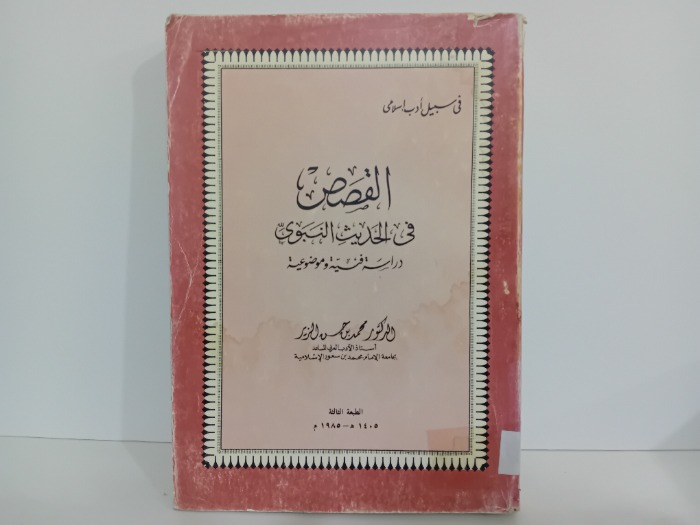 في سبيل أدب إسلامى
القصص
في الحديث النبوى
دراسة فنية وموضوعية
الدكتور محمد بن حسن الزير
أستاذ الأدب العربي المساعد
بجامعة الإمام محمد بن سعود الإسلامية
الطبعة الثالثة
١٤٠٥ هـ - ١٩٨٥ م